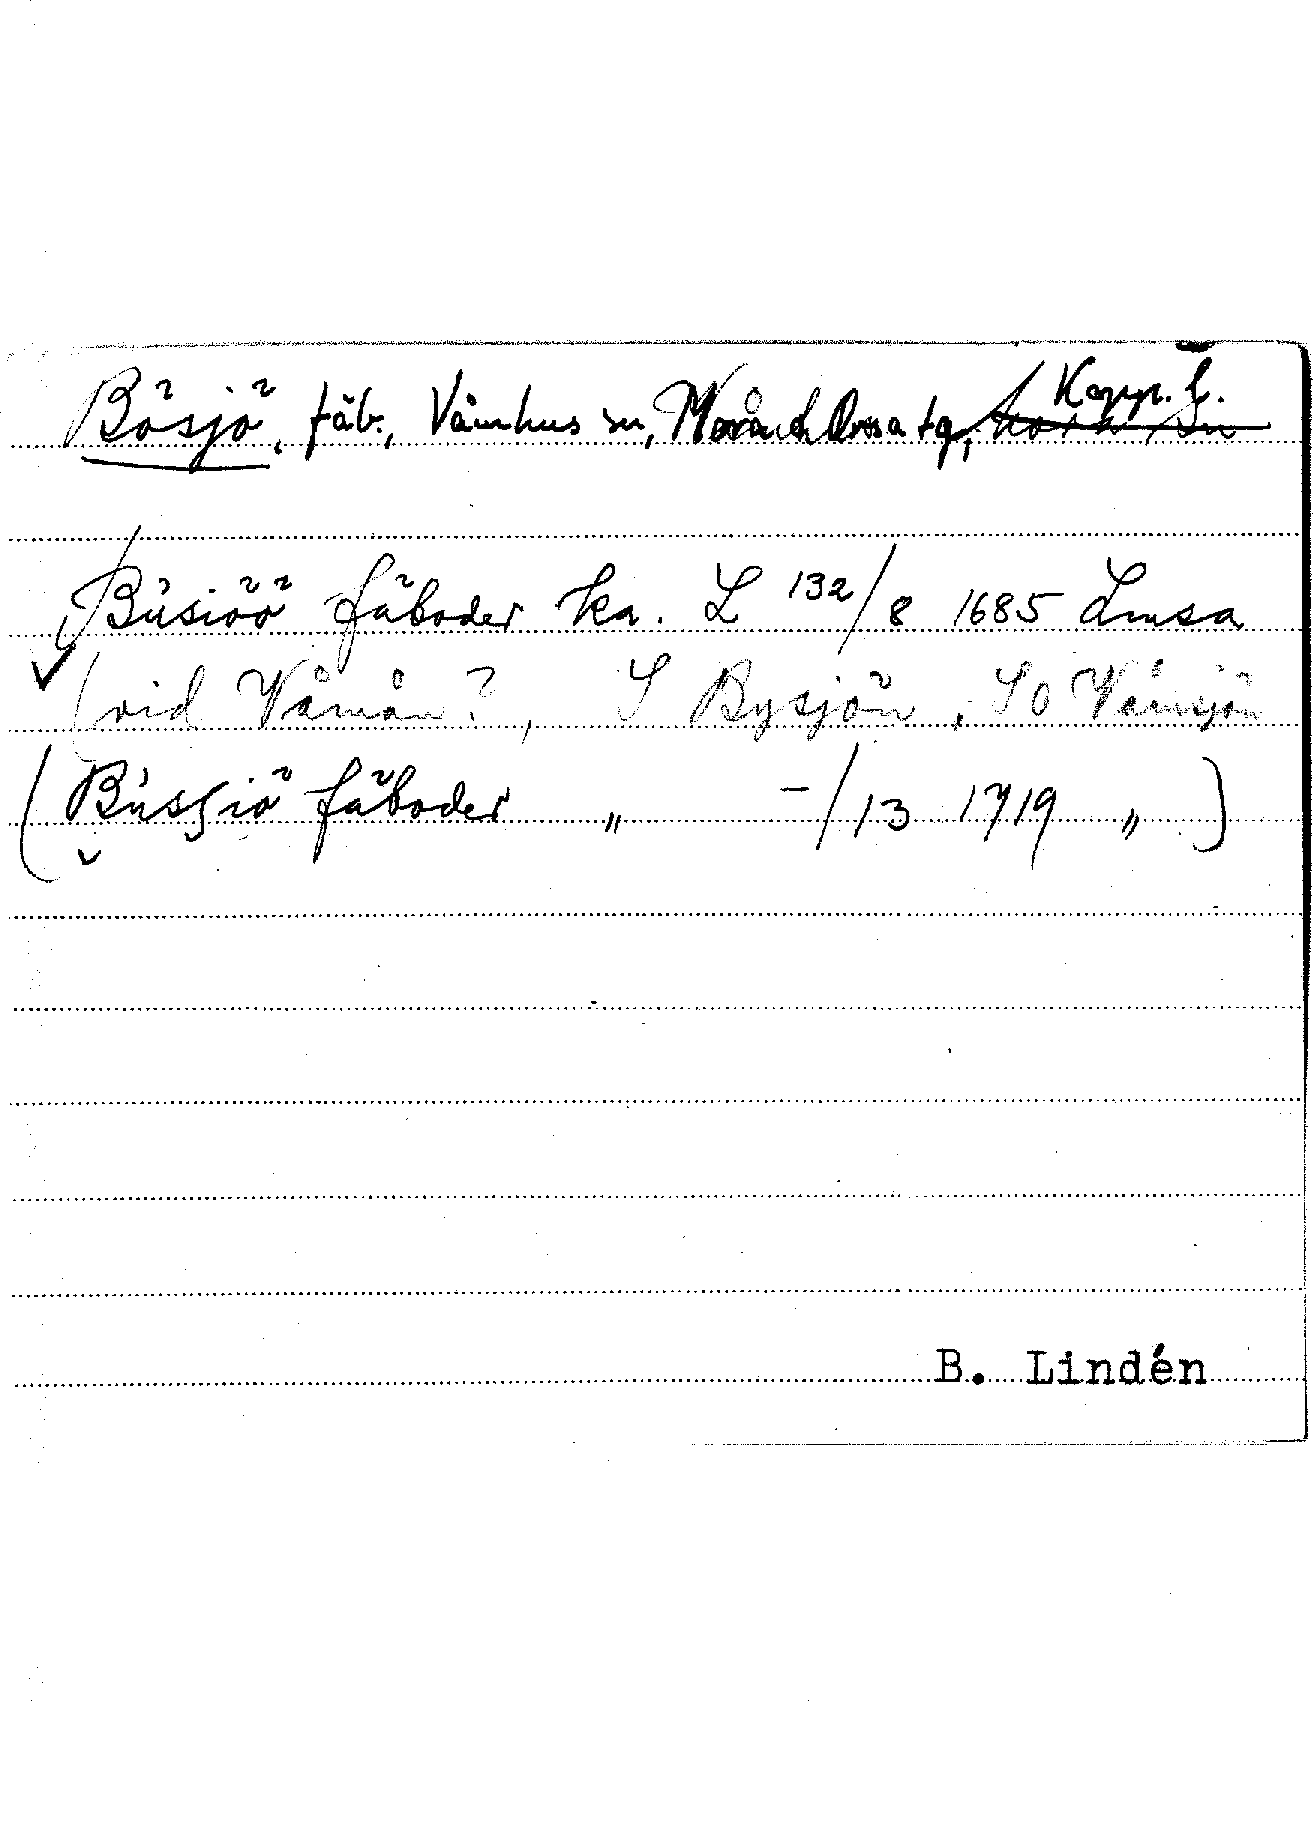 Bösjö, fäb., Våmhus sn, Mora och Orsa tg, Kopp. l.
Büsiöö fäboder ka. L 132/8 1685 Lmsa
(vid Våmån?, S Bysjön, SO Våmsjön
(Büssjö fäboder „ -/13 1719 „ )
B. Lindén